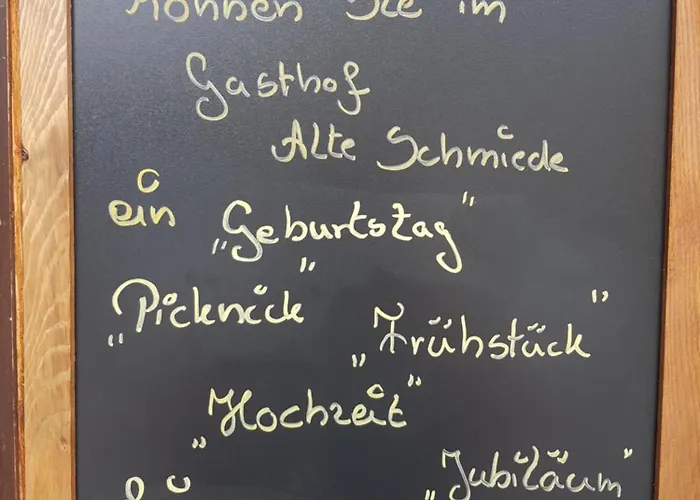 Können Sie im
Gasthof
Alte Schmiede
ein „Geburtstag"
„Picknick"
„Frühstück"
„Hochzeit"
„Jubiläum"